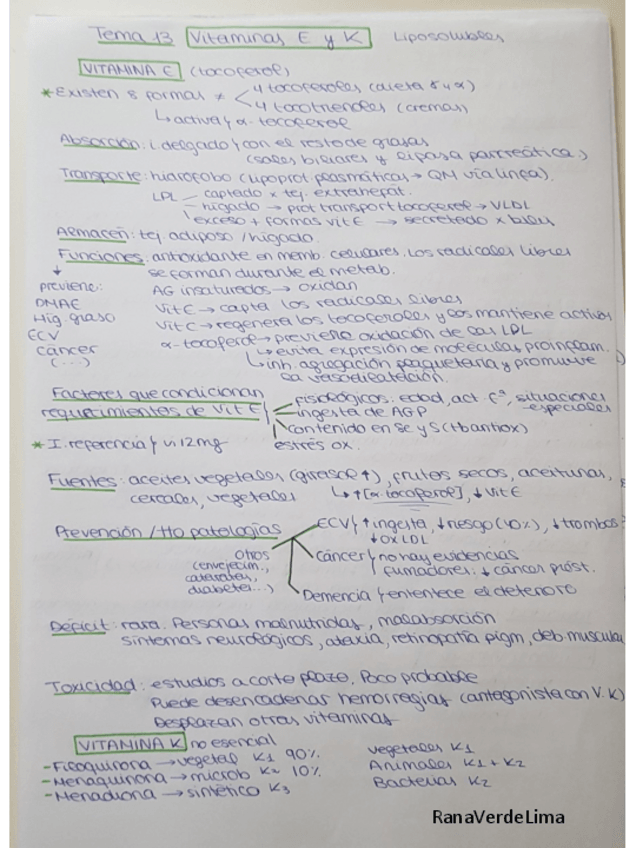 Tema 13 Vitaminas E y K Liposolubles
VITAMINA E (tocoferol)
* Existen 8 formas ≠ < 4 tocoferoles (aceites y α)
4 tocotrienoles (cremas)
↳ activa / α-tocoferol
Absorción: i. delgado / con el resto de grasas
(sales biliares y lipasa pancreática)
Transporte: hidrófobo (lipoprot. plasmáticas → QM vía linfa).
LPL — captado x tej. extrahepát.
hígado → prot transport tocoferol → VLDL
exceso + formas vit E → secretado x bilis
Almacén: tej. adiposo / hígado.
Funciones: antioxidante en memb. celulares. Los radicales libres
se forman durante el metab.
↓
previene:
DMAE
Híg. graso
ECV
cáncer
(...)
AG insaturados → oxidan
Vit E → capta los radicales libres
Vit C → regenera los tocoferoles y los mantiene activos
α-tocoferol → previene oxidación de las LDL
↳ evita expresión de moléculas proinflam.
↳ inh. agregación plaquetaria y promueve
la vasodilatación.
Factores que condicionan
requerimientos de Vit E
fisiológicos: edad, act. fª, situaciones
especiales
ingesta de AGP
contenido en Se y S (tb antiox)
estrés ox.
* I. referencia / ui 12mg
Fuentes: aceites vegetales (girasol ↑), frutos secos, aceitunas,
cereales, vegetales ↳ ↑[α-tocoferol], ↓ Vit E
Prevención / tto patologías
ECV / ↑ ingesta, ↓ riesgo (40%), ↓ trombos
↓ ox LDL
cáncer / no hay evidencias
fumadores: ↓ cáncer próst.
Demencia / enlentece el deterioro
Otros
(envejecim.,
cataratas,
diabetes...)
Déficit: rara. Personas malnutridas, malabsorción
síntomas neurológicos, ataxia, retinopatía pigm, deb. muscular
Toxicidad: estudios a corto plazo. Poco probable
Puede desencadenar hemorragias (antagonista con V. K)
Desplazan otras vitaminas
VITAMINA K no esencial
- Filoquinona → vegetal K1 90% vegetales K1
- Menaquinona → microb K2 10% Animales K1 + K2
- Menadiona → sintético K3 Bacterias K2
RanaVerdeLima